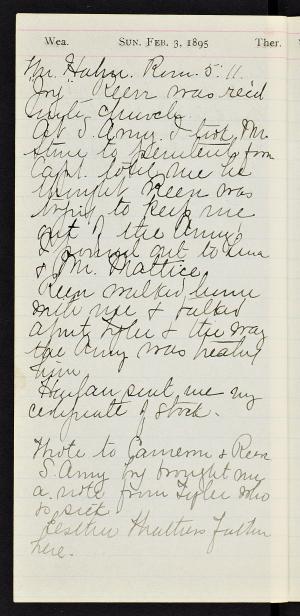 Wea. SUN. FEB. 3, 1895 Ther.
Mr. Hahn. Rom. 5:11.
Keen was rec'd
church.
At S. Army. I took Mr.
to penitents form
Capt. told me he
thought Keen was
trying to keep me
out of the Army.
I pointed out to
& Mr. Mattice
Keen walked home
with me & talked
about & the way
the Army was treating
him
Harlan sent me my
certificate of stock.
Wrote to Cameron & Keen
S. Army boy brought me
a note from who
is sick
father
here.